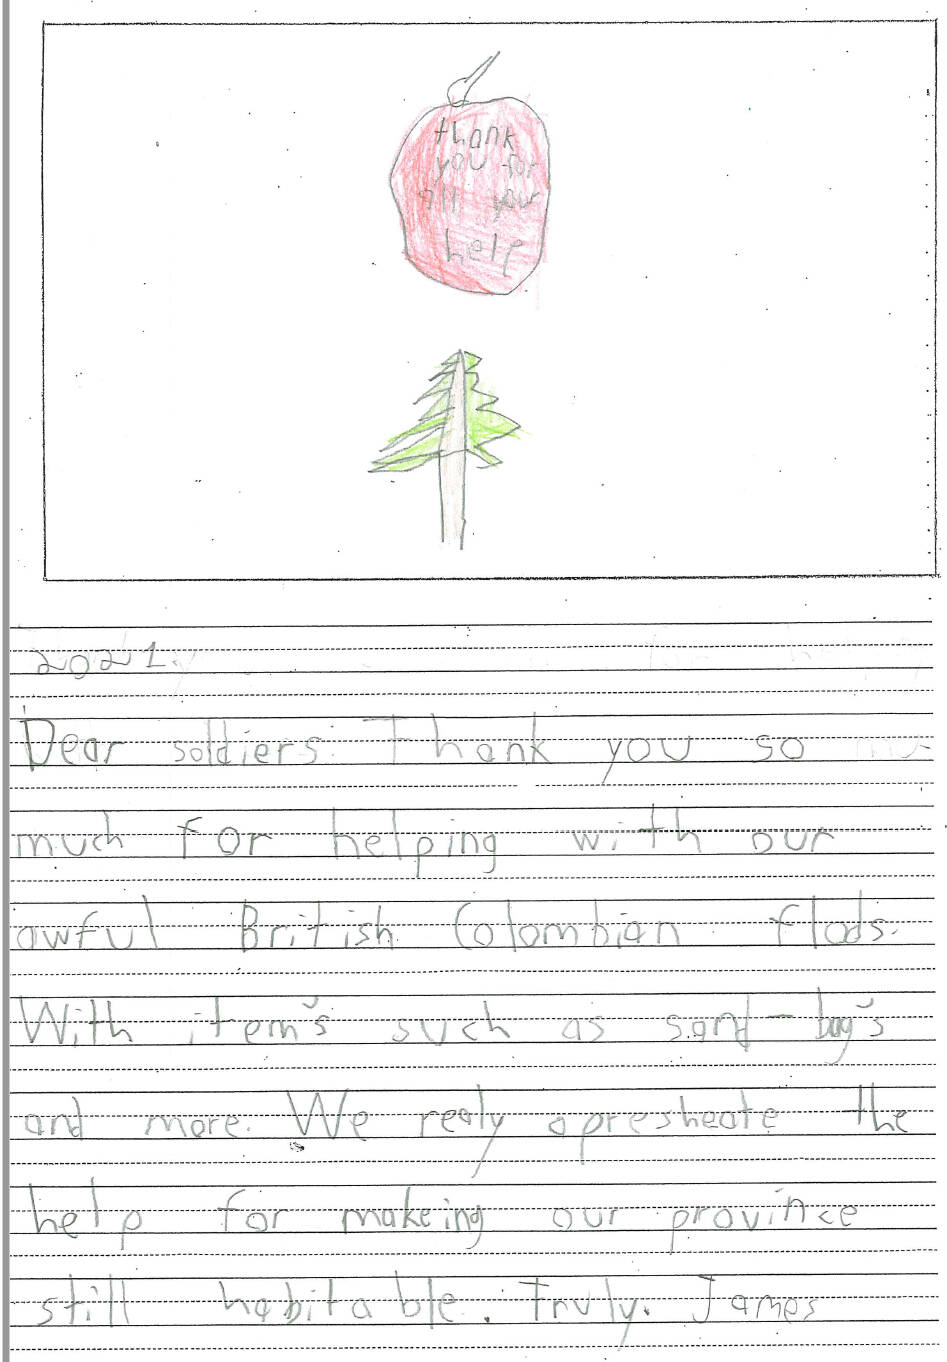 thank
you for
all your
help
2021.
Dear soldiers. Thank you so
much for helping with our
awful British Colombian flods.
With item's such as sand-bag's
and more. We realy apresheate the
help for makeing our province
still habitable. Truly. James